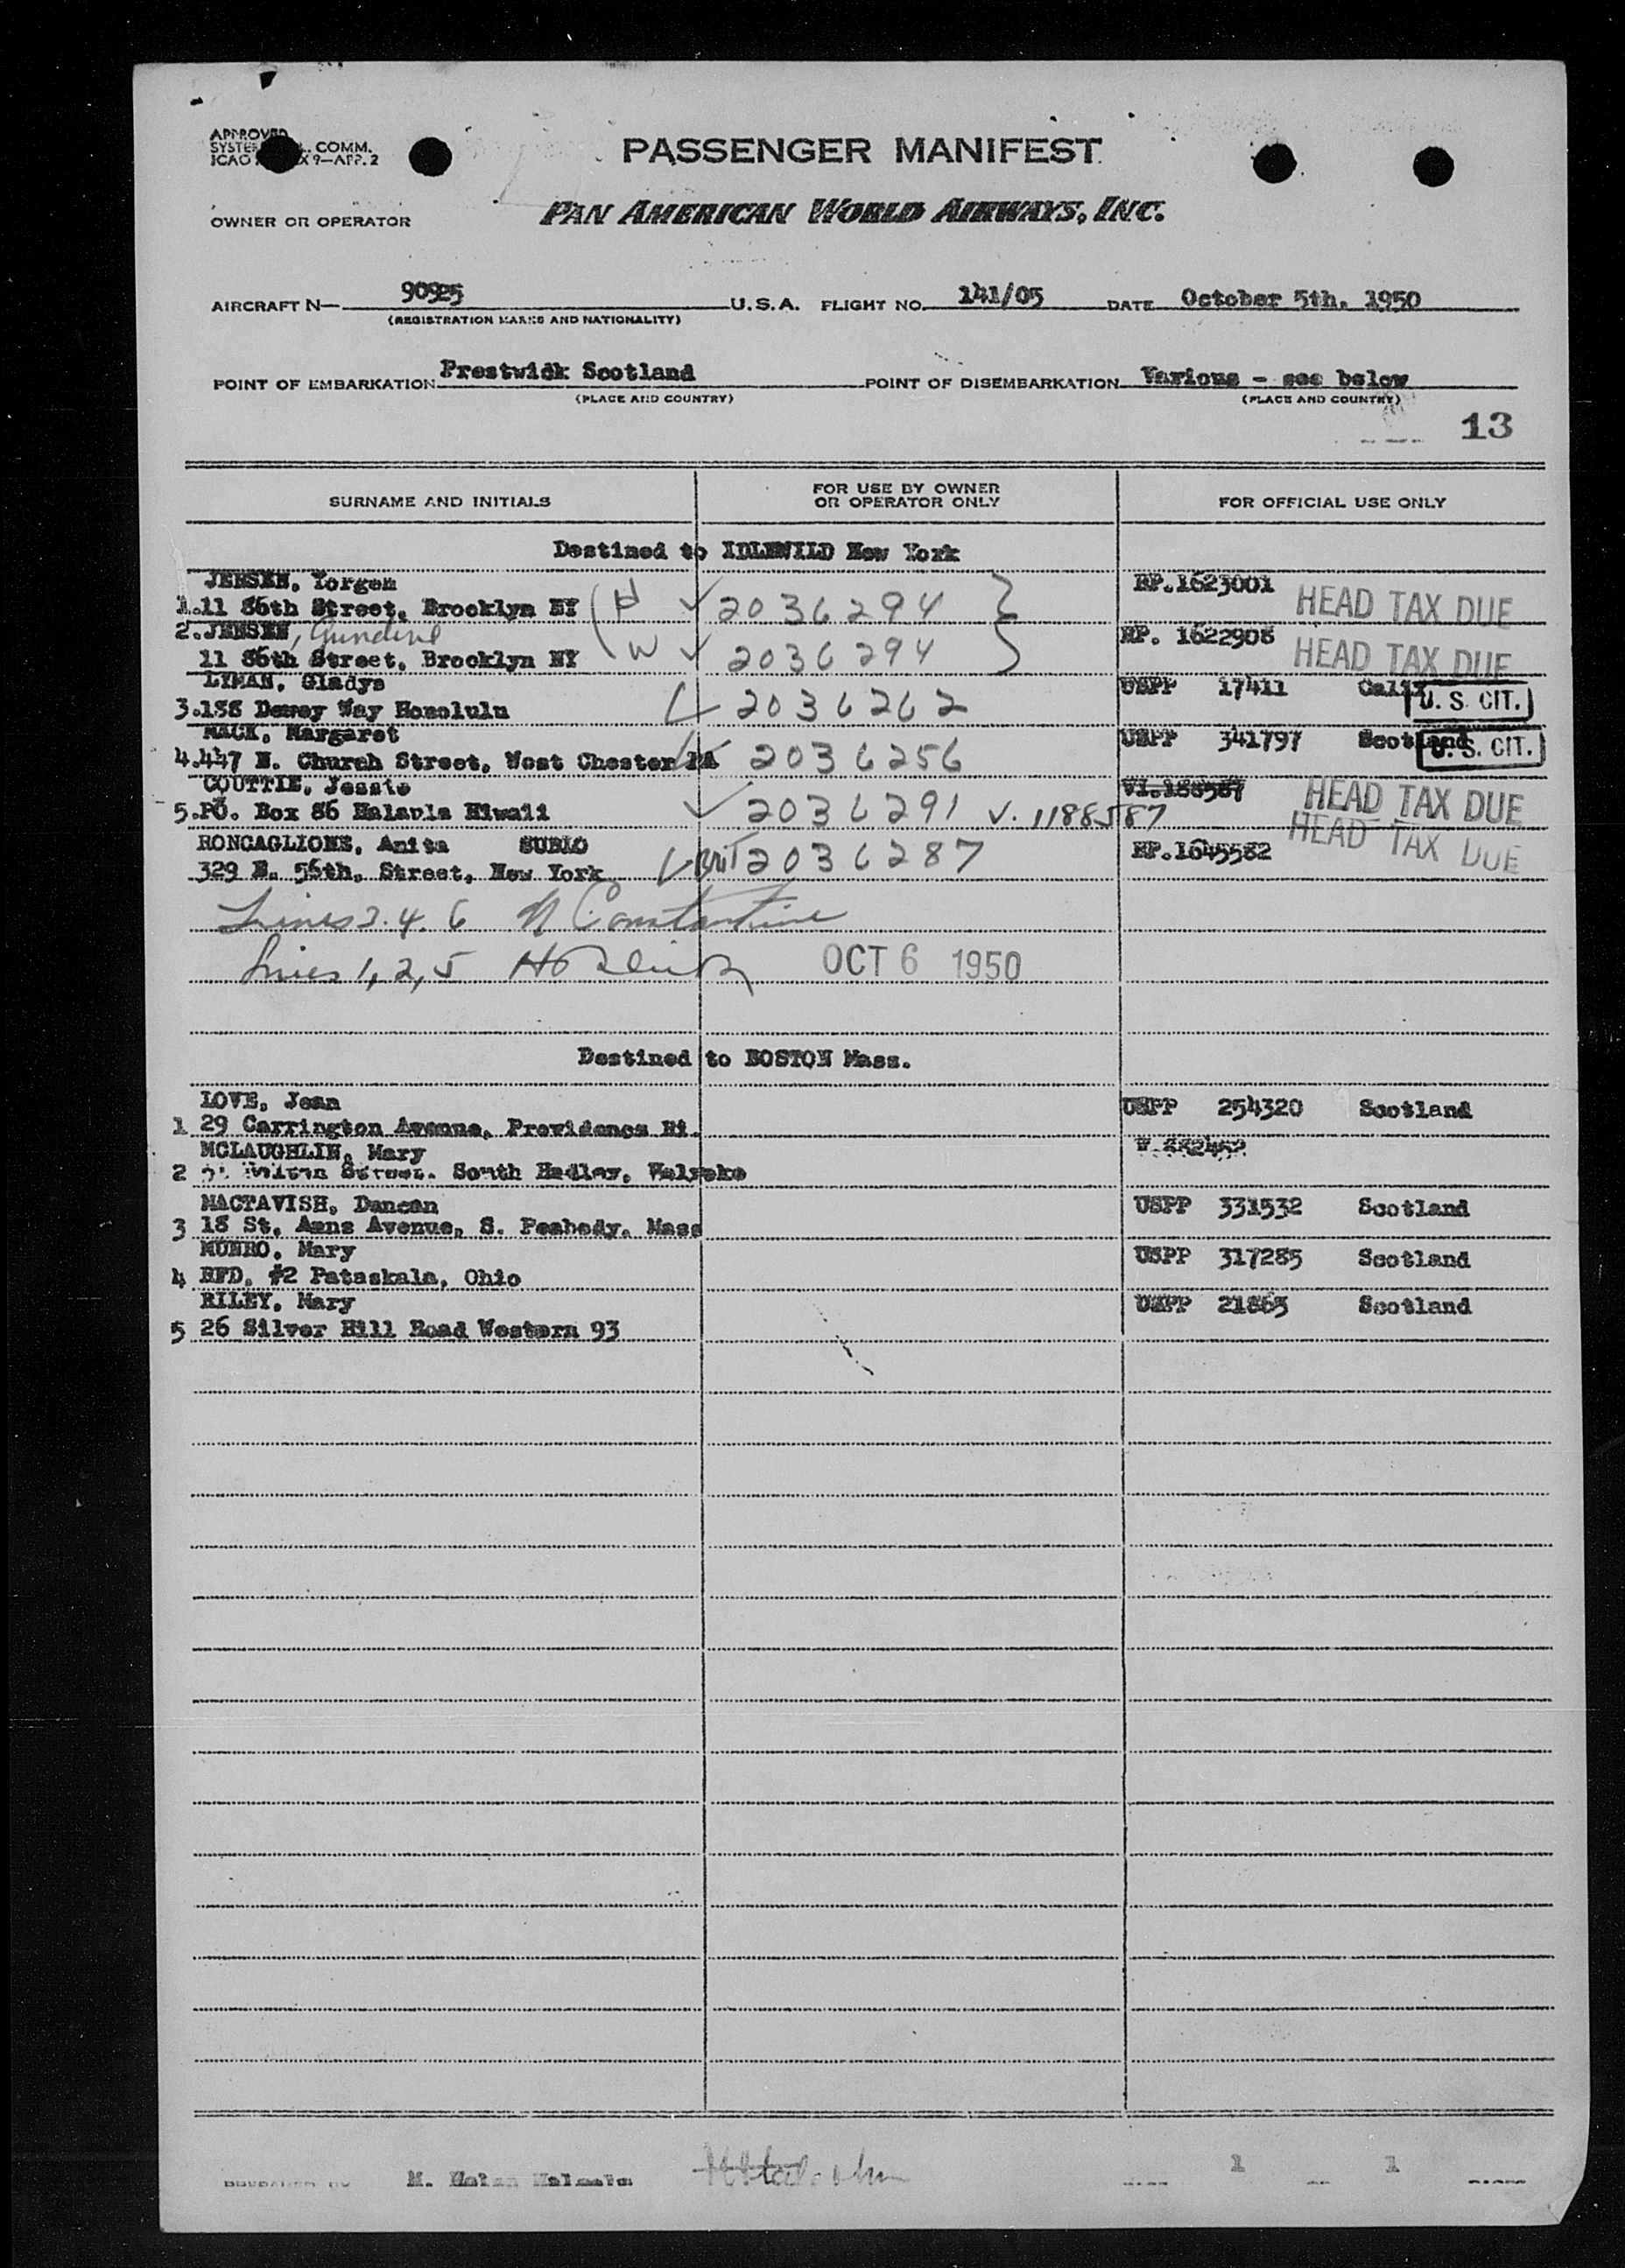 APPROVED
COMM.
ICAO X 9—APP. 2
PASSENGER MANIFEST
OWNER OR OPERATOR PAN AMERICAN WORLD AIRWAYS, INC.
AIRCRAFT N— 90925 U.S.A. FLIGHT NO. 141/05 DATE October 5th. 1950
(REGISTRATION MARKS AND NATIONALITY)
POINT OF EMBARKATION Prestwick Scotland POINT OF DISEMBARKATION Various - see below
(PLACE AND COUNTRY) (PLACE AND COUNTRY)
13
SURNAME AND INITIALS FOR USE BY OWNER OR OPERATOR ONLY FOR OFFICIAL USE ONLY
Destined to IDLEWILD New York
JENSEN, Yorgen RP.1623001 HEAD TAX DUE
1.11 86th Street, Brooklyn NY H 2036294
2.JENSEN, RP. 1622908 HEAD TAX DUE
11 86th Street, Brooklyn NY W 2036294
LYMAN, Gladys USPP 17411 Calif U. S. CIT.
3.188 Dewey Way Honolulu 2036262
MACK, Margaret USPP 341797 Scotland U. S. CIT.
4.447 N. Church Street, West Chester PA 2036256
COUTTIE, Jessie VI.188587 HEAD TAX DUE
5.PO. Box 86 Halaula Hiwaii 2036291 V. 1188587
RONCAGLIONE, Anita SUBIO RP.1645582 HEAD TAX DUE
329 E. 56th. Street, New York Brit 2036287
Lines 3. 4. 6 N Constantine
Lines 1, 2, 5 OCT 6 1950
Destined to BOSTON Mass.
LOVE, Jean USPP 254320 Scotland
1 29 Carrington Avenue, Providence RI.
MCLAUGHLIN, Mary
2 South Hadley,
MACTAVISH, Duncan USPP 331532 Scotland
3 18 St. Anns Avenue, S. Peabody, Mass
MUNRO, Mary USPP 317285 Scotland
4 RFD. #2 Pataskala, Ohio
RILEY, Mary USPP 21865 Scotland
5 26 Silver Hill Road Western 93
M.
1 1